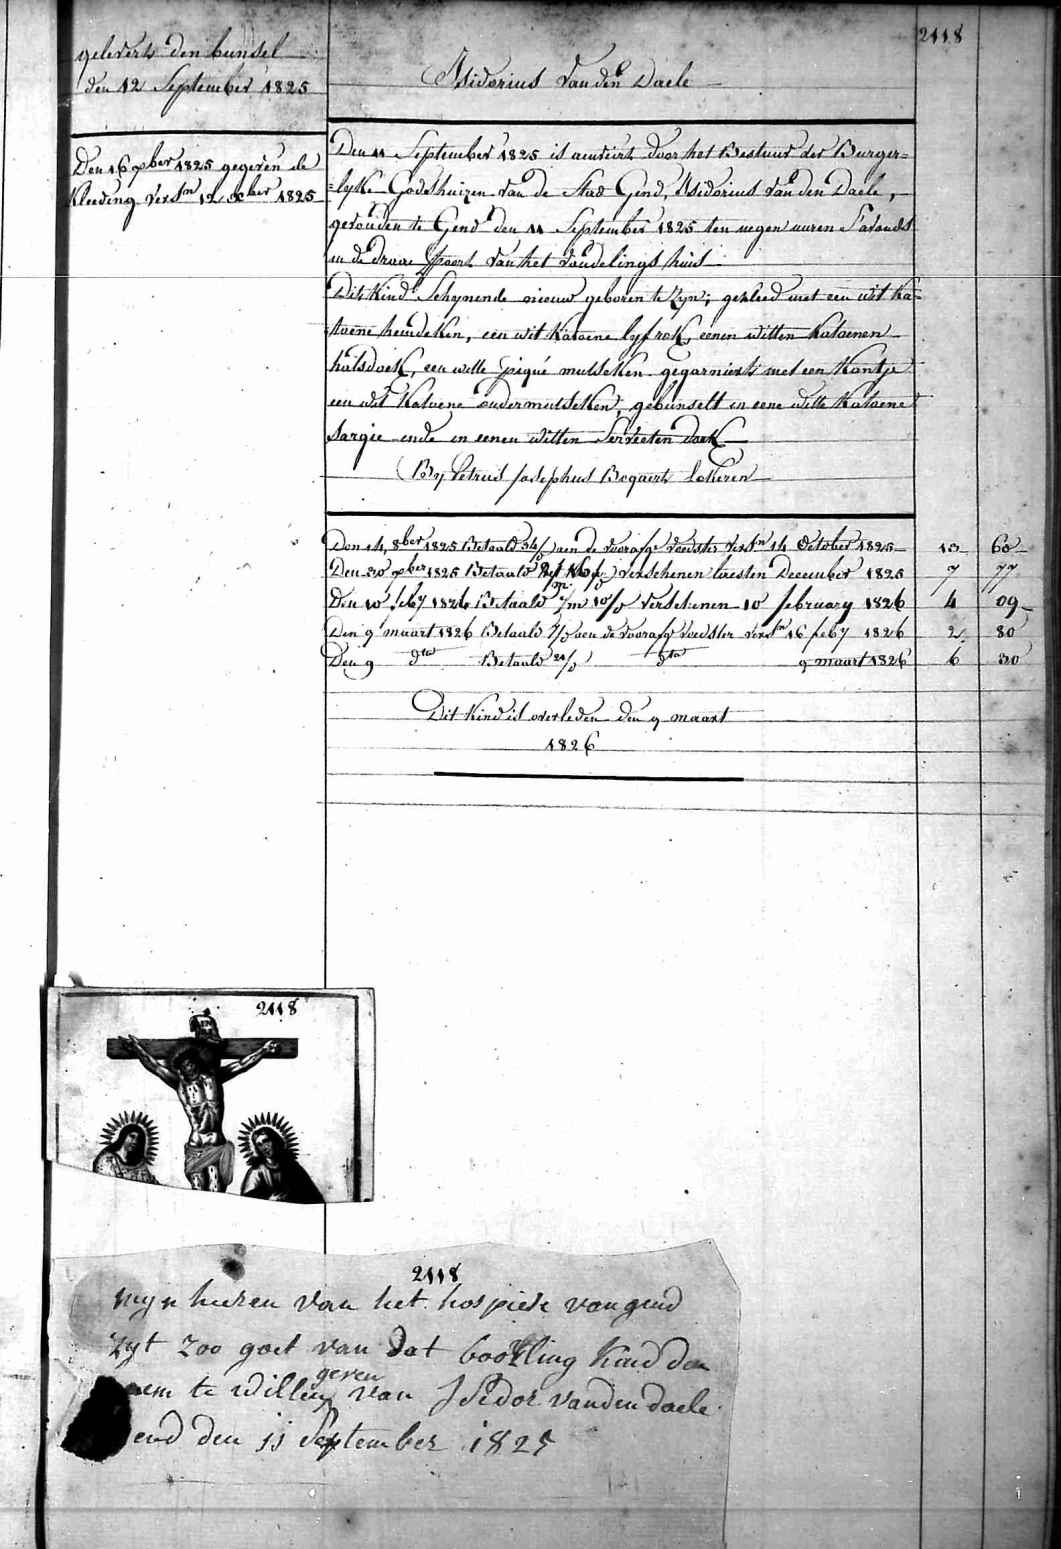 2118
gelevert den bunsel
den 12 September 1825
Isidorius Van den Daele
Den 16 9ber 1825 gegeven de
Kleeding versn 12 Xber 1825
Den 11 September 1825 is door het Bestuur der Burger=
=lyke Godshuizen van de Stad Gend, Isidorius Van den Daele,
gevonden te Gend den 11 September 1825 ten negen uuren S'avonds
in de Poort van het Vondelings huis
Dit Kind Schynende nieuw geboren te zyn; gekleed met een wit Ka=
=toene hemdeken, een wit Katoene lyfrok, eenen witten Katoenen
halsdoek, een witte piqué mutseken gegarniert met een Kantje
een wit Katoene ondermutseken, gebunselt in eene witte Katoene
Sargie ende in eenen witten Servieten doek
By Petrus Josephus Bogaert Lokeren
Den 14 8ber 1825 Betaald 34/ aen de voorafge voedster versn 14 October 1825 13 60
Den 30 xber 1825 Betaald verschenen laesten December 1825 7 77
Den 10 feby 1826 Betaald 1/m 10/ verschenen 10 february 1826 4 09
Den 9 maart 1826 Betaald 7/ aen de voorafge voedster versn 16 feby 1826 2 80
Den 9 dto Betaald 21/ dto 9 maart 1826 6 30
Dit Kind is overleden den 9 maart
1826
2118
2118
myn heeren van het hospiese van gend
zyt zoo goet van dat Kind den
naem te willen geven van Isidor vanden daele
end den 11 September 1825